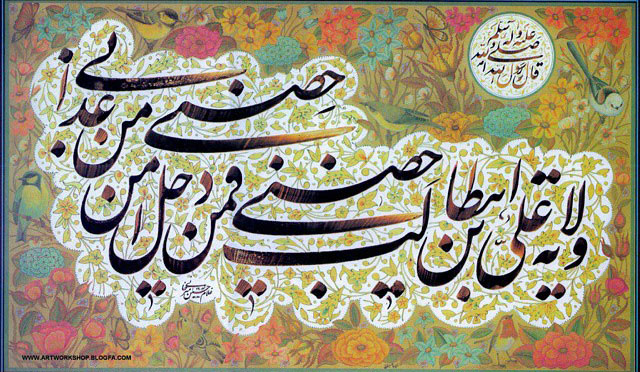 قال رسول الله
صلی الله
علیه و آله و سلم
ولایة علی بن ابیطالب حصنی
فمن دخل حصنی امن من عذابی
WWW.ARTWORKSHOP.BLOGFA.COM